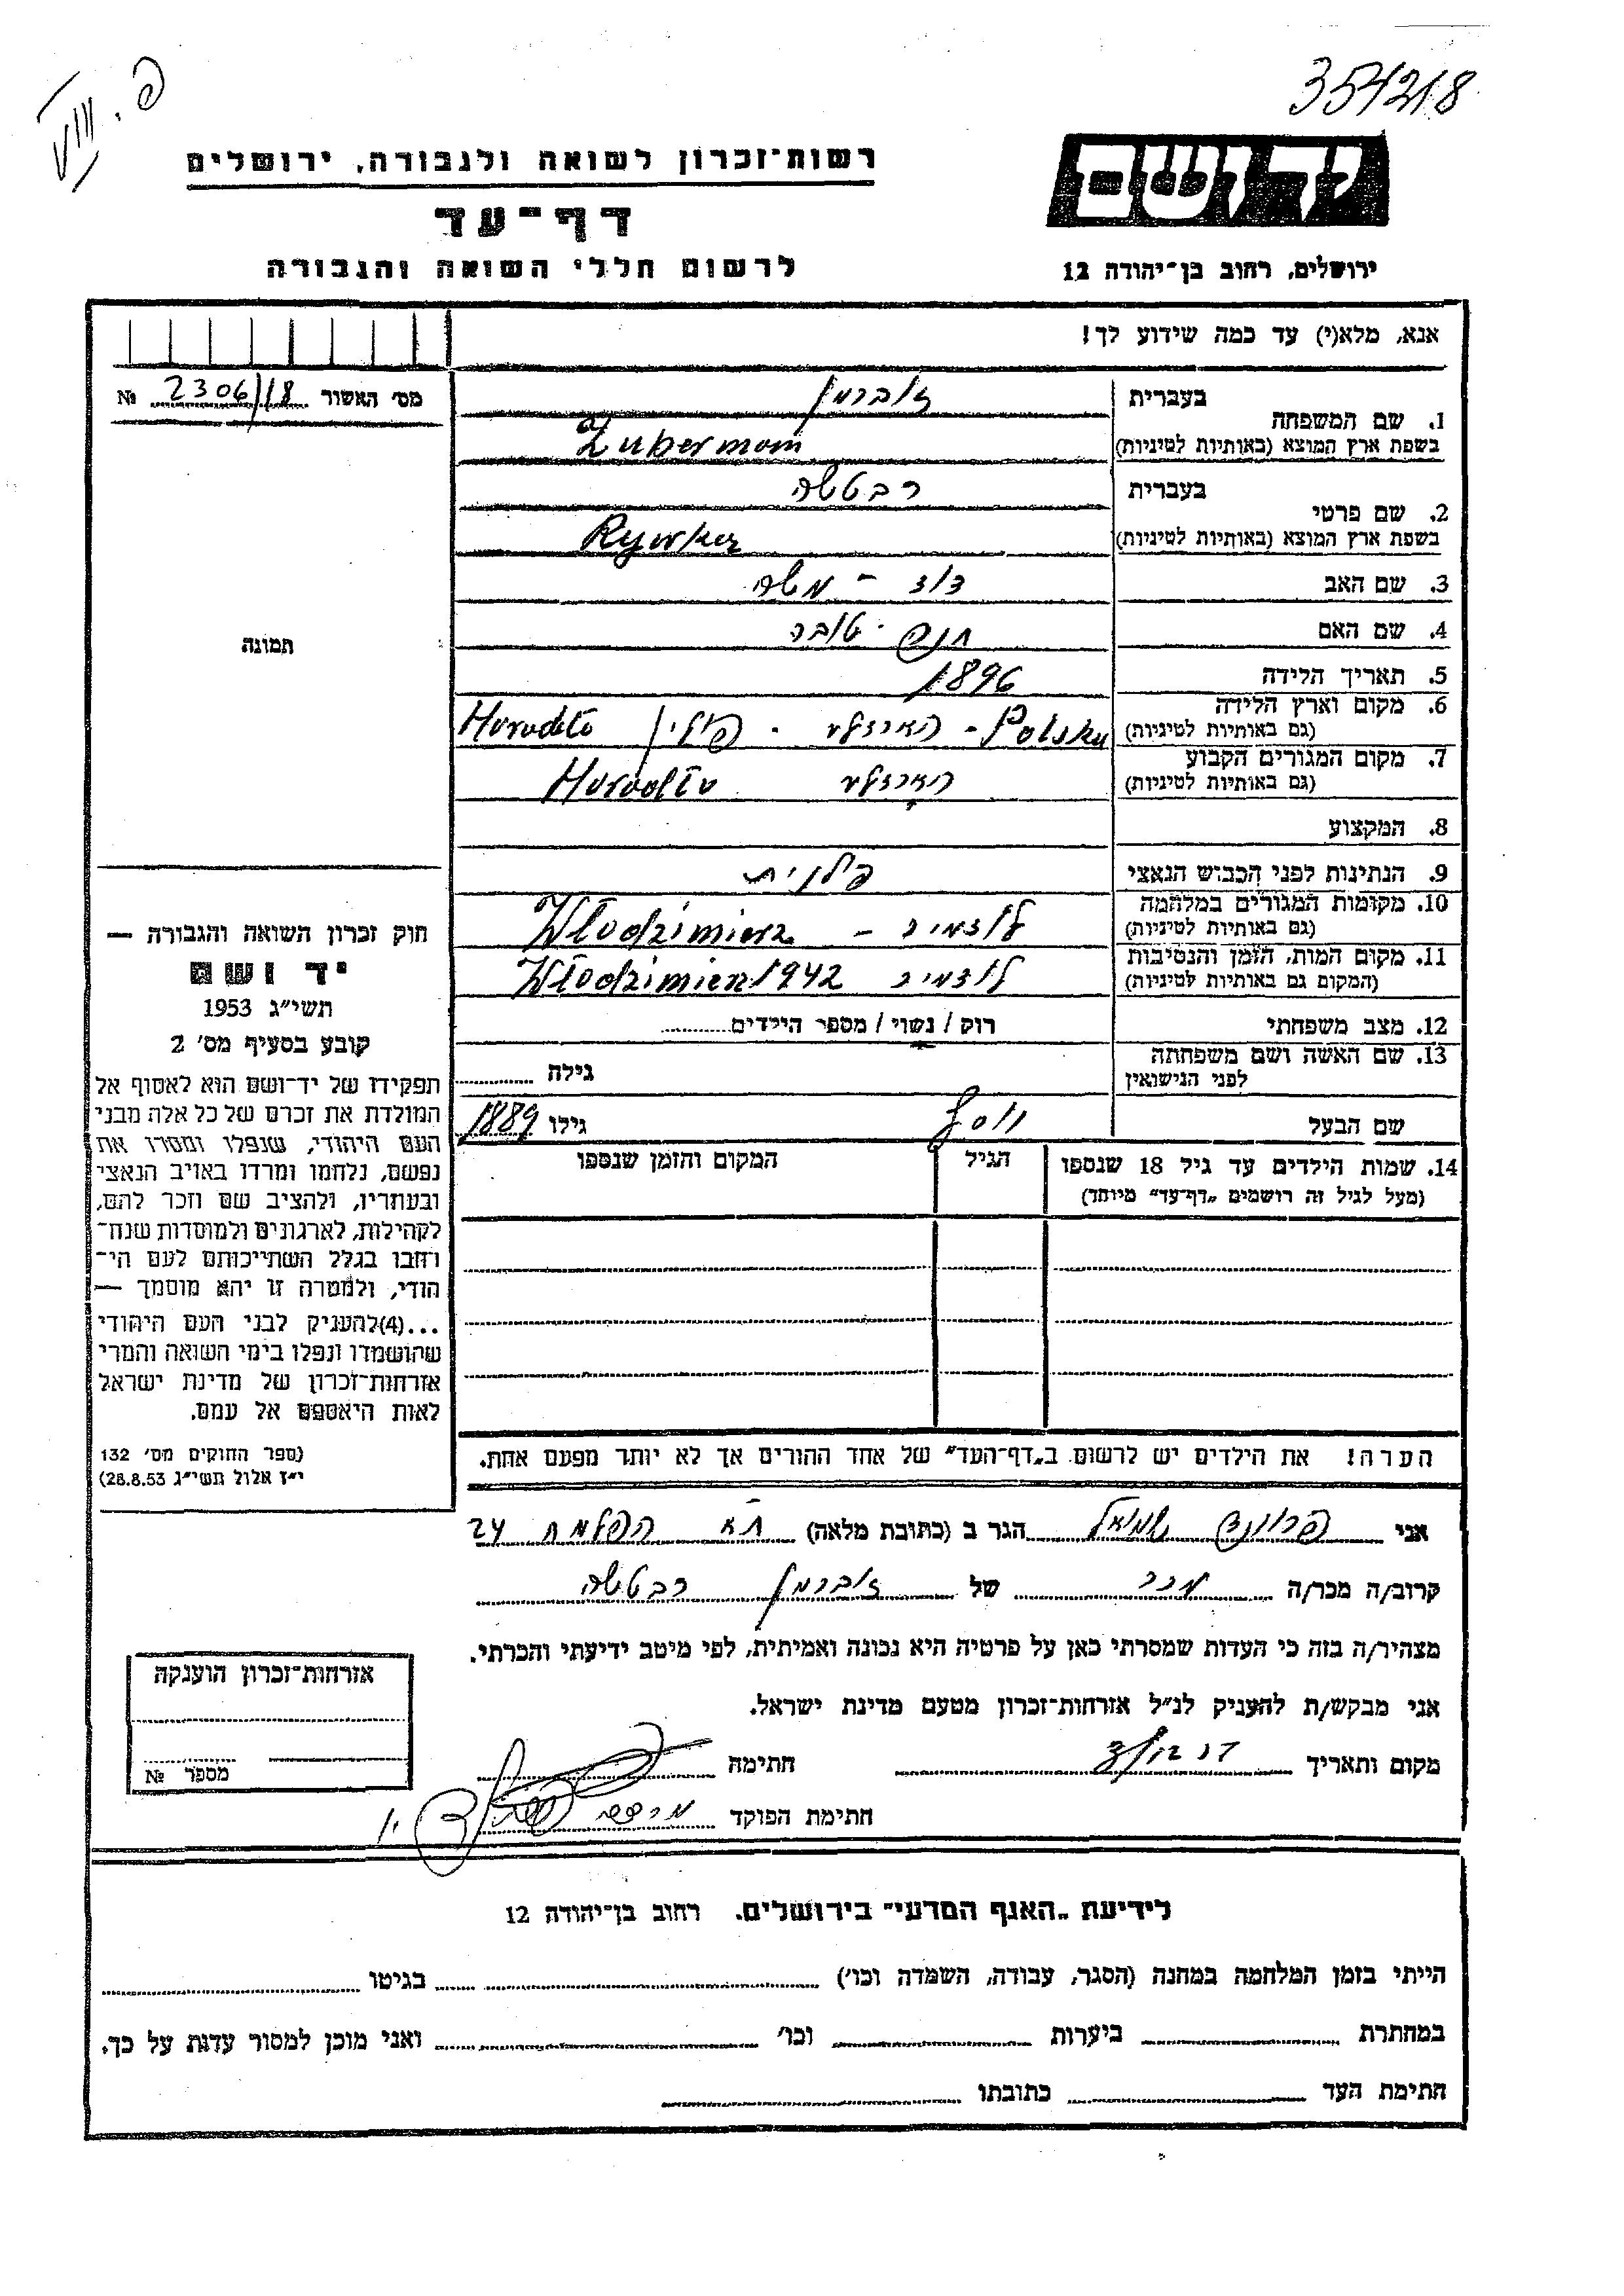 354218
פ. VIII
יד ושם
רשות־זכרון לשואה ולגבורה, ירושלים
דף־עד
לרשום חללי השואה והגבורה
ירושלים, רחוב בן־יהודה 12
אנא, מלא(י) עד כמה שידוע לך!
מס׳ האשור 2306/18 №
1. שם המשפחה בעברית זוברמן
בשפת ארץ המוצא (באותיות לטיניות) Zuberman
2. שם פרטי בעברית רבטשה
בשפת ארץ המוצא (באותיות לטיניות) Rywka
3. שם האב דוד - משה
4. שם האם חנה טובה
5. תאריך הלידה 1896
6. מקום וארץ הלידה
(גם באותיות לטיניות) Polska - פולין Horodło
7. מקום המגורים הקבוע
(גם באותיות לטיניות) Horodło
8. המקצוע
9. הנתינות לפני הכבוש הנאצי פולנית
10. מקומות המגורים במלחמה
(גם באותיות לטיניות) לודמיר - Włodzimierz
11. מקום המות, הזמן והנסיבות
(המקום גם באותיות לטיניות) לודמיר Włodzimierz 1942
12. מצב משפחתי רוק / נשוי / מספר הילדים
13. שם האשה ושם משפחתה
לפני הנישואין גילה
שם הבעל יוסף גילו 1889
14. שמות הילדים עד גיל 18 שנספו הגיל המקום והזמן שנספו
(מעל לגיל זה רושמים „דף־עד״ מיוחד)
הערה! את הילדים יש לרשום ב„דף־העד״ של אחד ההורים אך לא יותר מפעם אחת.
תמונה
חוק זכרון השואה והגבורה —
יד ושם
תשי״ג 1953
קובע בסעיף מס׳ 2
תפקידו של יד־ושם הוא לאסוף אל
המולדת את זכרם של כל אלה מבני
העם היהודי, שנפלו ומסרו את
נפשם, נלחמו ומרדו באויב הנאצי
ובעוזריו, ולהציב שם וזכר להם,
לקהילות, לארגונים ולמוסדות שנח־
רבו בגלל השתייכותם לעם הי־
הודי, ולמטרה זו יהא מוסמך —
...(4)להעניק לבני העם היהודי
שהושמדו ונפלו בימי השואה והמרי
אזרחות־זכרון של מדינת ישראל
לאות היאספם אל עמם.
(ספר החוקים מס׳ 132
י״ז אלול תשי״ג 28.8.53)
אני פרוינד שמואל הגר ב (כתובת מלאה) תא הפלמח 24
קרוב/ה מכר/ה מכר של זוברמן רבטשה
מצהיר/ה בזה כי העדות שמסרתי כאן על פרטיה היא נכונה ואמיתית, לפי מיטב ידיעתי והכרתי.
אני מבקש/ת להעניק לנ״ל אזרחות־זכרון מטעם מדינת ישראל.
מקום ותאריך חתימה
חתימת הפוקד
אזרחות־זכרון הוענקה
מספר №
לידיעת „האגף המדעי״ בירושלים. רחוב בן־יהודה 12
הייתי בזמן המלחמה במחנה (הסגר, עבודה, השמדה וכו׳) בגיטו
במחתרת ביערות וכו׳ ואני מוכן למסור עדות על כך.
חתימת העד כתובתו